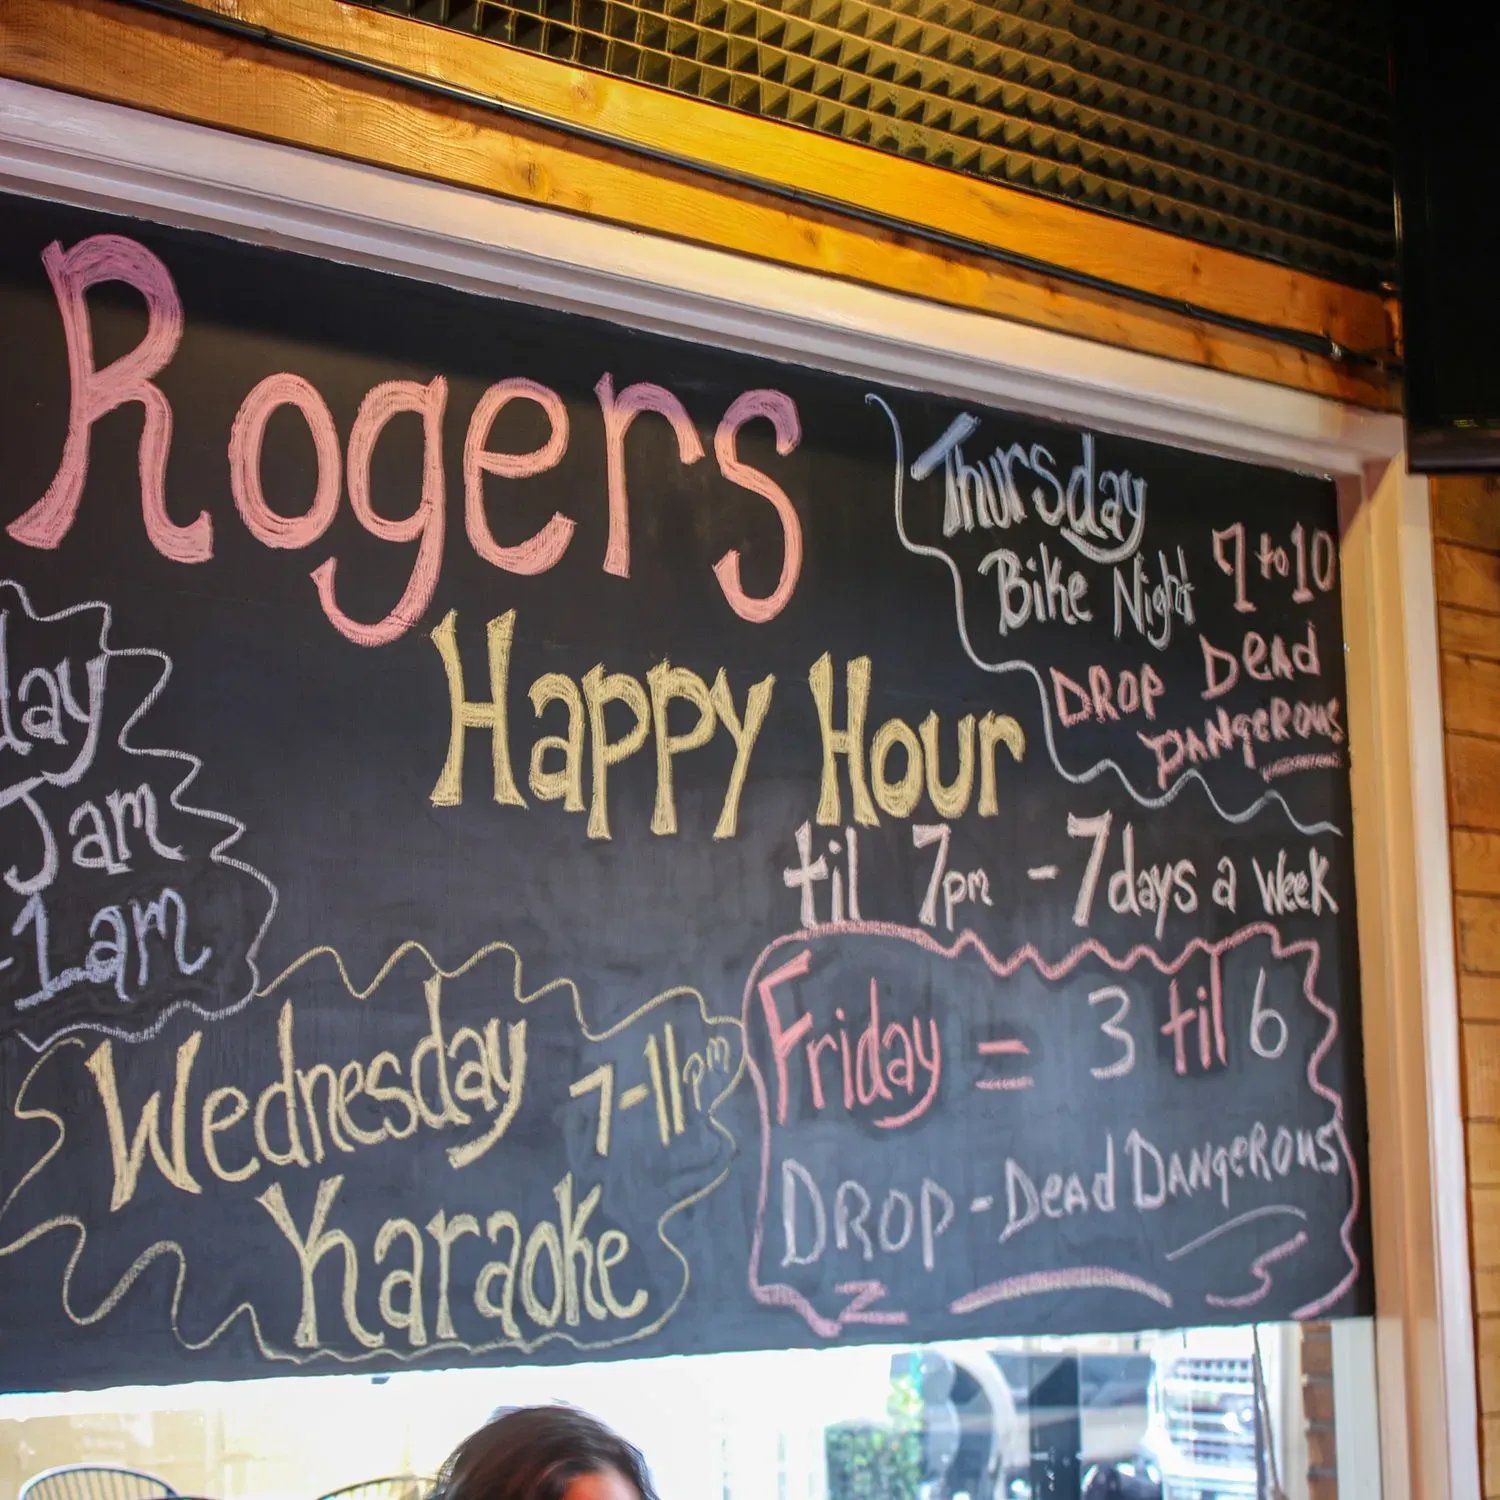 Rogers
Happy Hour
til 7pm - 7 days a week
Thursday
Bike Night 7 to 10
DROP DeAd
DANgeROUS
Jam
-1am
Wednesday 7-11pm
Karaoke
Friday = 3 til 6
DROP-DeAd DANgeROUS